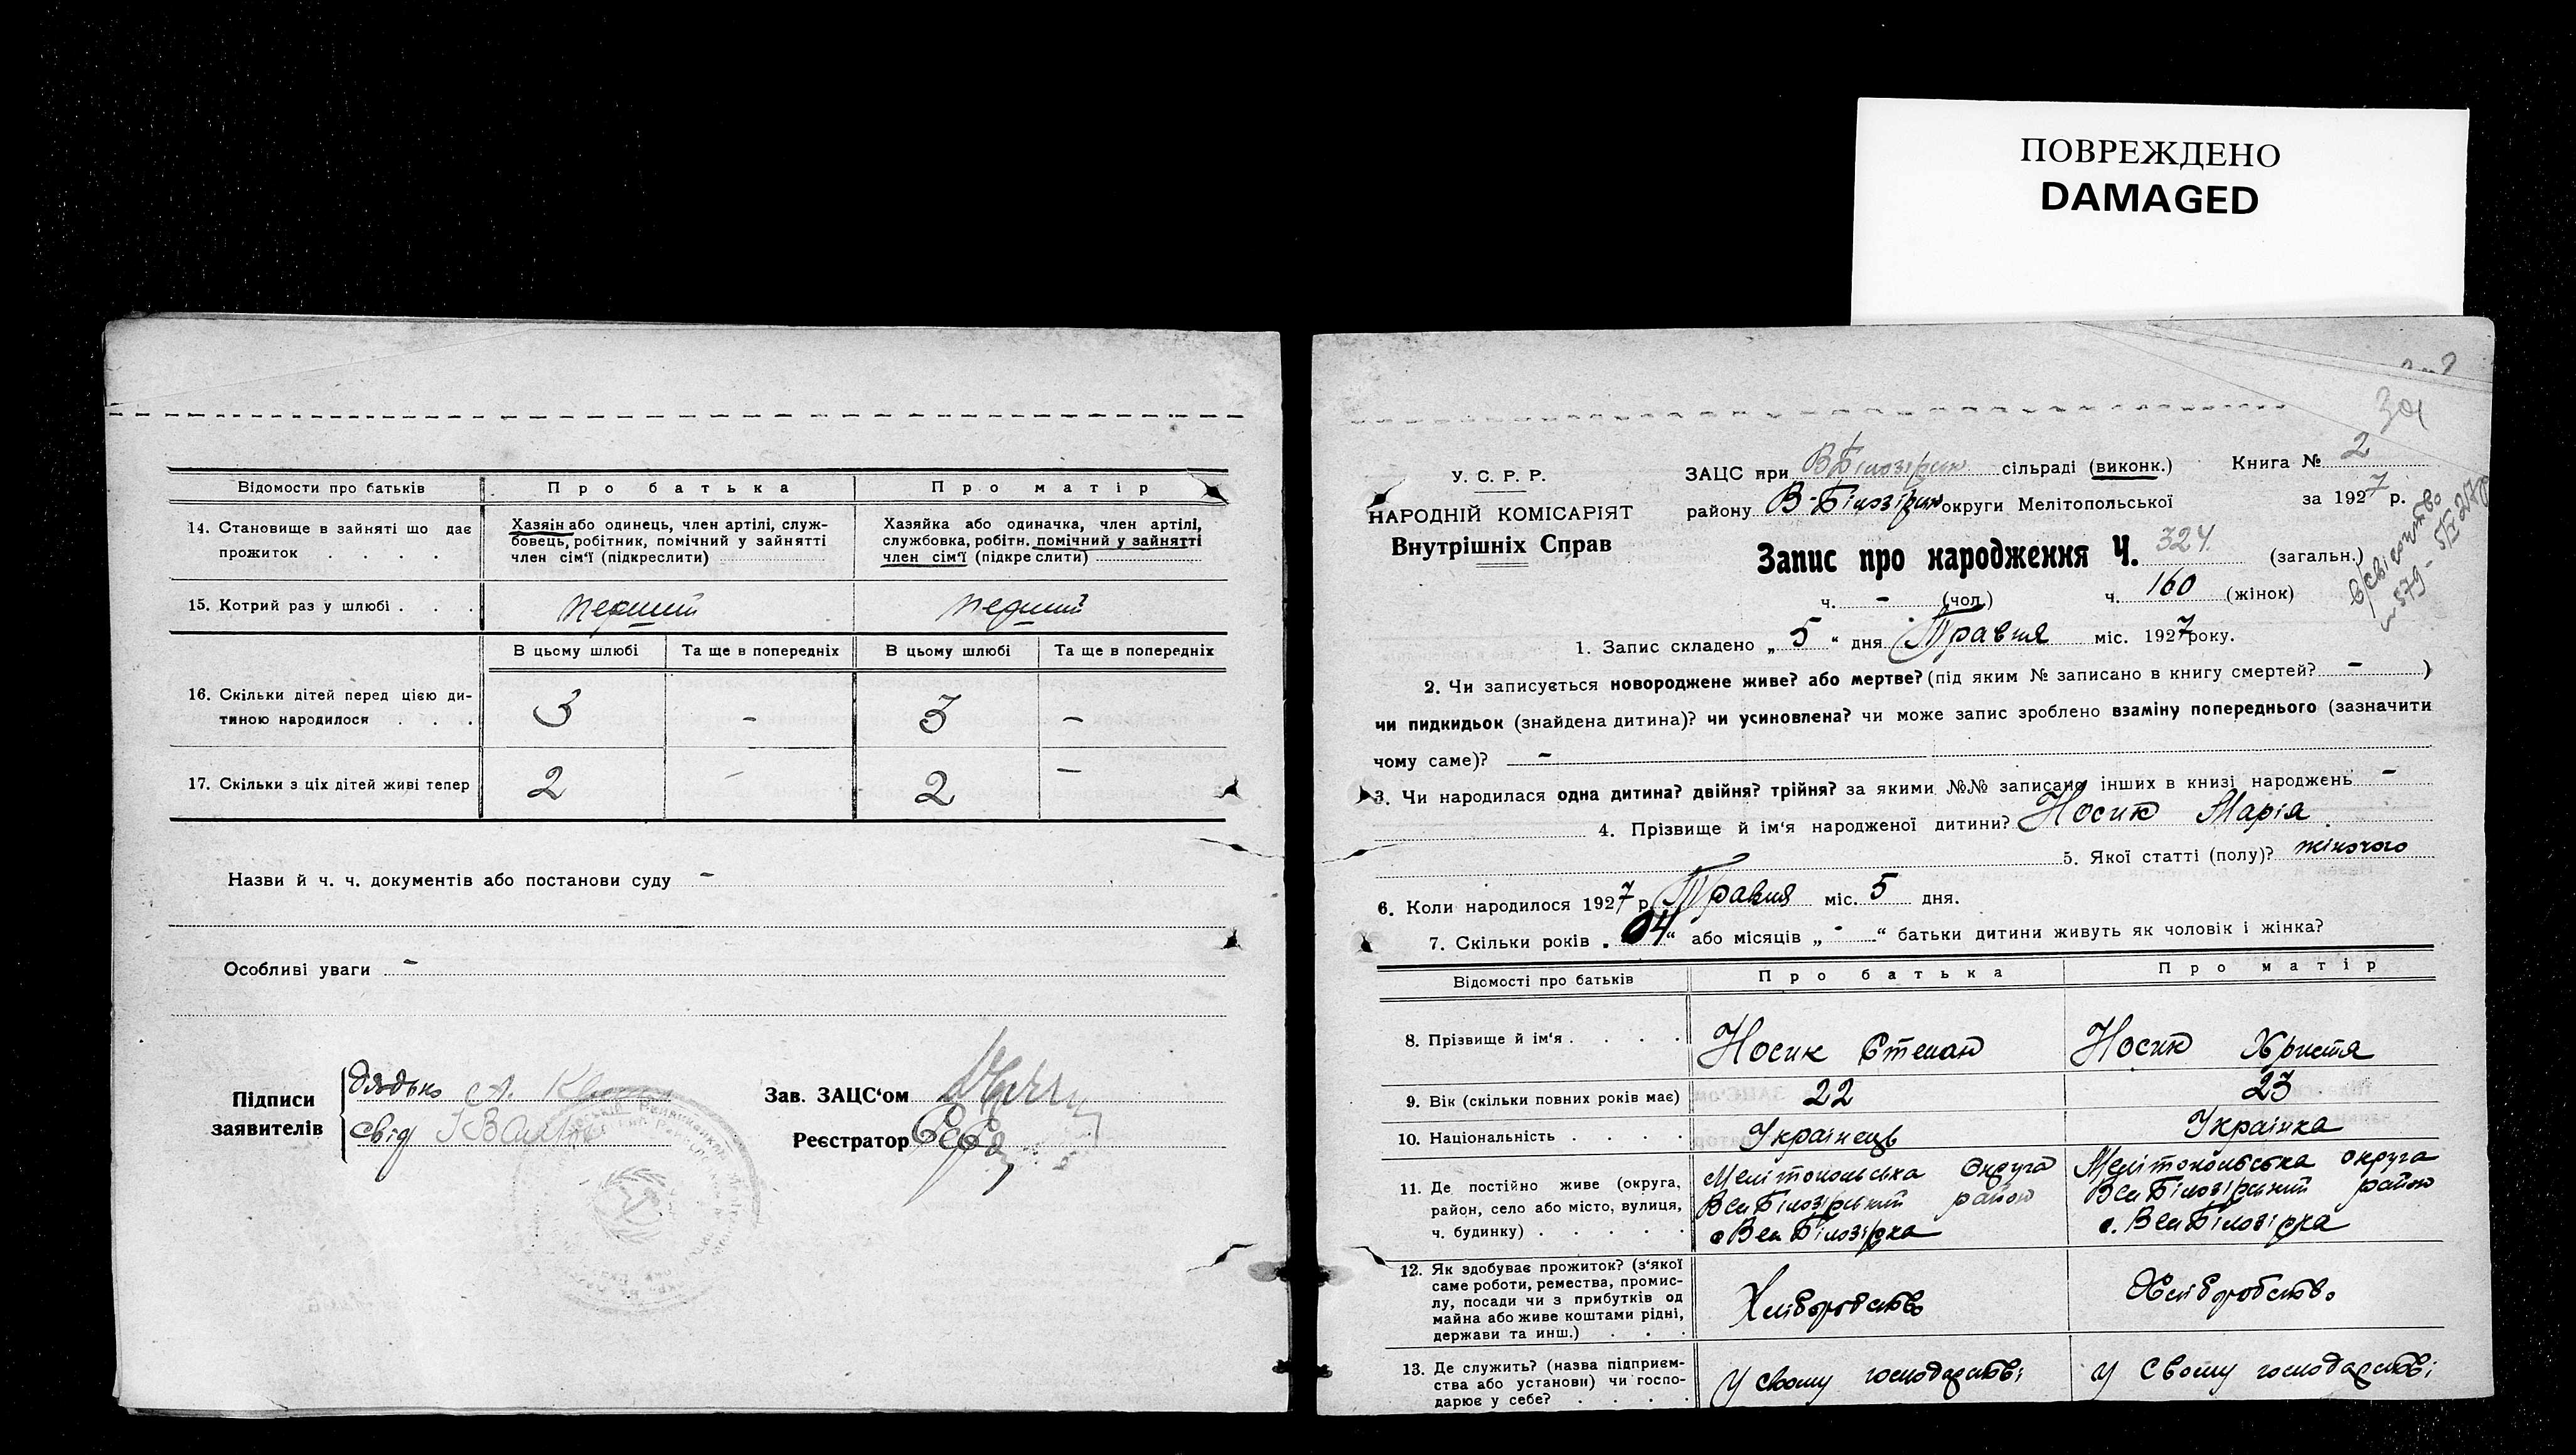 ПОВРЕЖДЕНО
DAMAGED
Відомости про батьків
Про батька
Про матір
14. Становище в зайняті що дає
прожиток . . . .
Хазяін або одинець, член артілі, служ-
бовець, робітник, помічний у зайнятті
член сім'ї (підкреслити)
Хазяйка або одиначка, член артілі,
службовка, робітн. помічний у зайнятті
член сім'ї (підкреслити)
15. Котрий раз у шлюбі . . .
перший
перший
В цьому шлюбі
Та ще в попередніх
В цьому шлюбі
Та ще в попередніх
16. Скільки дітей перед цією ди-
тиною народилося . . .
3 - 3 -
17. Скільки з ціх дітей живі тепер
2 - 2 -
Назви й ч. ч. документів або постанови суду -
Особливі уваги -
Підписи
заявителів
дядько
свід
Зав. ЗАЦС'ом
Реєстратор
30
У. С. Р. Р.
НАРОДНІЙ КОМІСАРІЯТ
Внутрішніх Справ
ЗАЦС при В Білозірск сільраді (виконк.) Книга № 2
району В-Білозірск округи Мелітопольської за 1927 р.
Запис про народження Ч. 324 (загальн.)
ч. - (чол.) ч. 160 (жінок)
1. Запис складено „ 5 “ дня Травня міс. 1927 року.
2. Чи записується новороджене живе? або мертве? (під яким № записано в книгу смертей? - )
чи пидкидьок (знайдена дитина)? чи усиновлена? чи може запис зроблено взаміну попереднього (зазначити
чому саме)? -
3. Чи народилася одна дитина? двійня? трійня? за якими №№ записано інших в книзі народжень -
4. Прізвище й ім'я народженої дитини? Носик Марія
5. Якої статті (полу)? жіночого
6. Коли народилося 1927 р. Травня міс. 5 дня.
7. Скільки років „ 04 “ або місяців „ - “ батьки дитини живуть як чоловік і жінка?
Відомості про батьків
Про батька
Про матір
8. Прізвище й ім'я . . . .
Носик Степан
Носик Христя
9. Вік (скільки повних років має)
22
23
10. Національність . . . .
Українець
Українка
11. Де постійно живе (округа,
район, село або місто, вулиця,
ч. будинку) . . . . .
Мелітопольська округа
Вел Білозірський район
с Вел Білозірка
Мелітопольська округа
Вел Білозірський район
с. Вел Білозірка
12. Як здобуває прожиток? (з'якої
саме роботи, ремества, промис-
лу, посади чи з прибутків од
майна або живе коштами рідні,
держави та инш.) . . .
Хліборобство
Хліборобство
13. Де служить? (назва підприєм-
ства або установи) чи госпо-
дарює у себе? . . . .
У свому господарстві
У свому господарстві